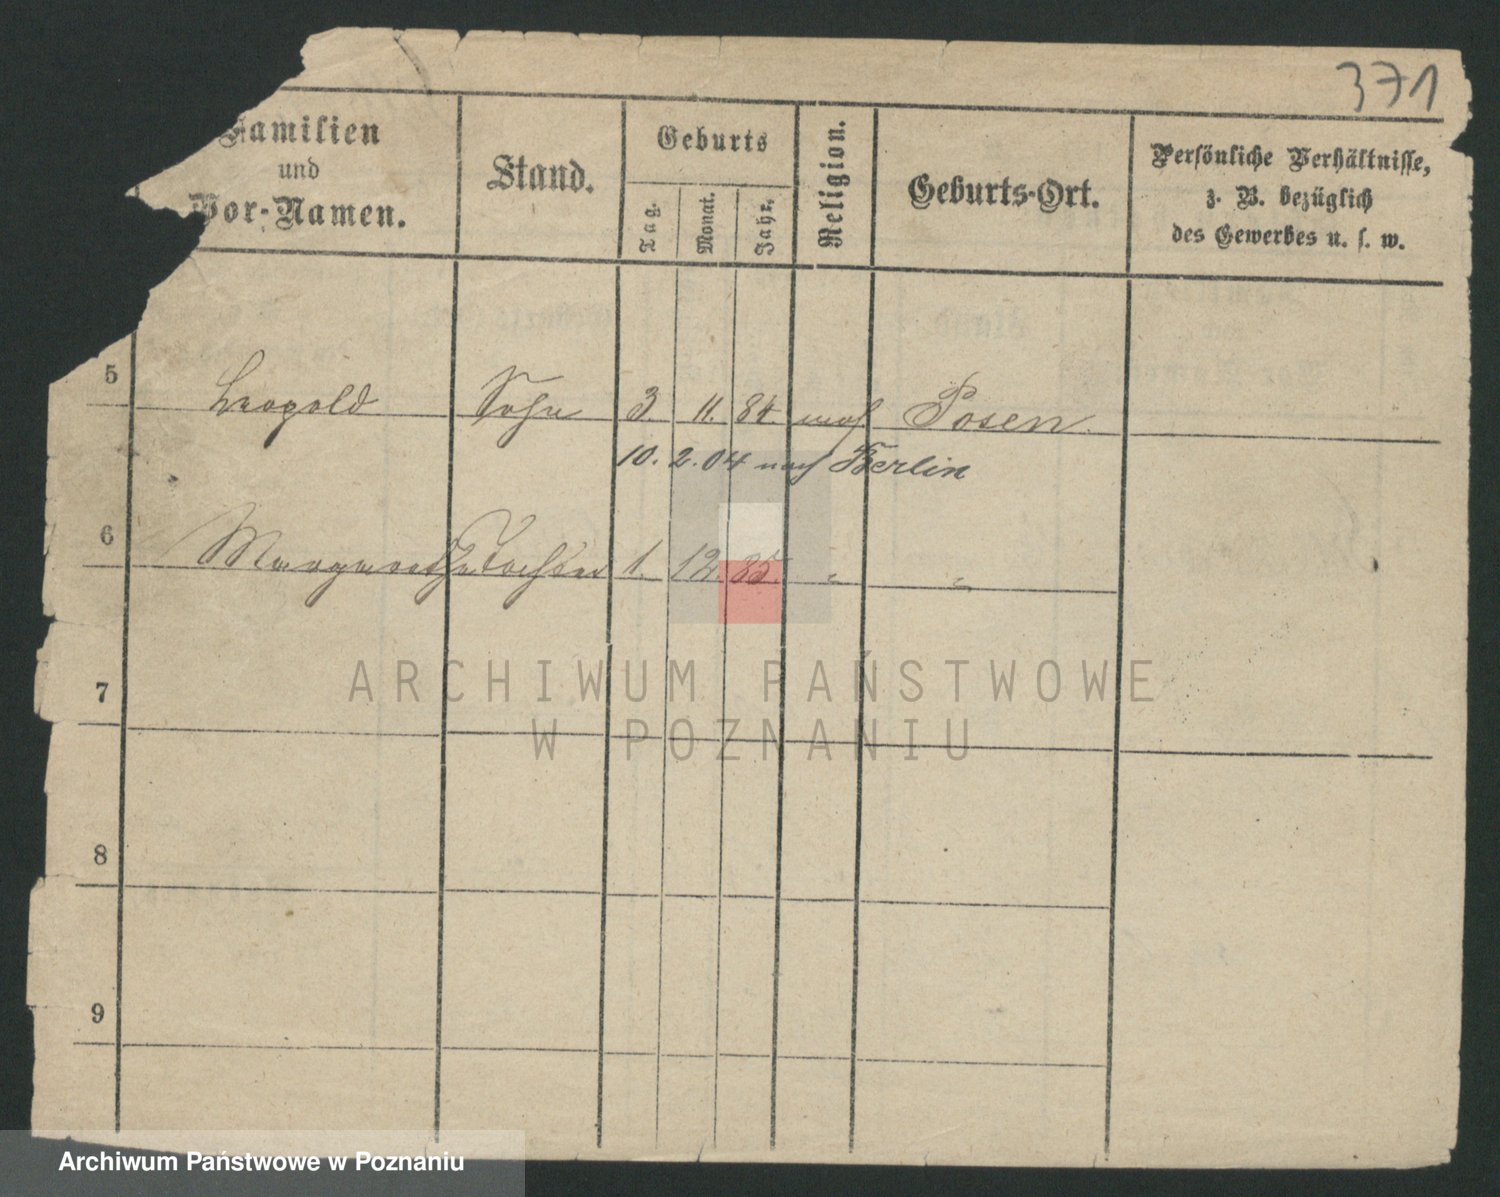 371
Familien
und
Vor-Namen.
Stand.
Geburts
Tag.
Monat.
Jahr.
Religion.
Geburts-Ort.
Persönliche Verhältnisse,
z. B. bezüglich
des Gewerbes u. s. w.
5 Leopold Sohn 3. 11. 84. mos Posen.
10. 2. 04 nach Berlin
6 Margarethe Tochter 1. 12. 85. " "
7
8
9
ARCHIWUM PAŃSTWOWE
W POZNANIU
Archiwum Państwowe w Poznaniu